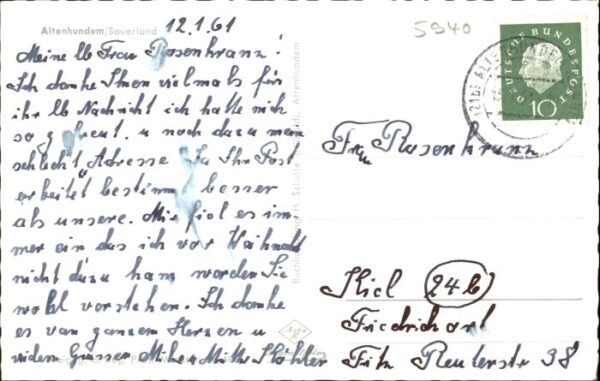 Altenhundem/Sauerland
12.1.61
5940
Meine lb Frau Rosenkranz!
Ich danke Ihnen vielmals für
ihr lb Nachricht ich hatte mich
so gefreut. u noch dazu mein
schlecht Adresse Ja Ihr Post
erbeitet bestimm besser
als unsere. Mir fiel es im-
mer ein das ich vor Weihnacht
nicht dazu kam werden Sie
wohl vorstehen. Ich danke
es von ganzem Herzen u
vielen Grüsse
DEUTSCHE BUNDESPOST
10
Frau Rosenkranz
Kiel 24b
Friedrichsort
Fritz Reuterstr 38